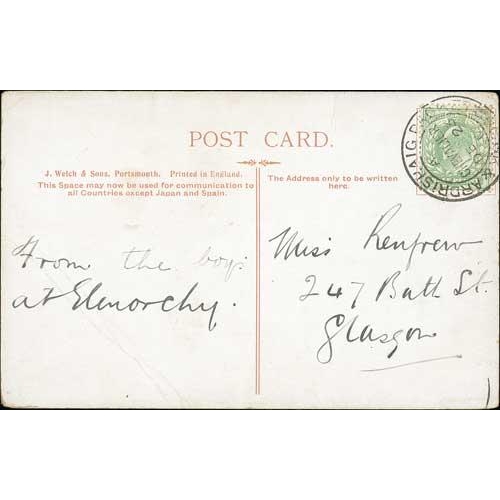 POST CARD.
J. Welch & Sons, Portsmouth. Printed in England.
This Space may now be used for communication to
all Countries except Japan and Spain.
The Address only to be written
here.
From the boys
at Glenorchy.
Miss Renfrew
247 Bath St.
Glasgow
ARDRISHAIG